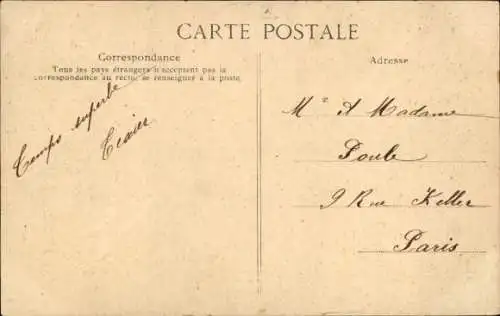 CARTE POSTALE
Correspondance
Tous les pays étrangers n'acceptent pas la
correspondance au recto, se renseigner à la poste
Temps superbe
Adresse
Mr A Madame
9 Rue Keller
Paris